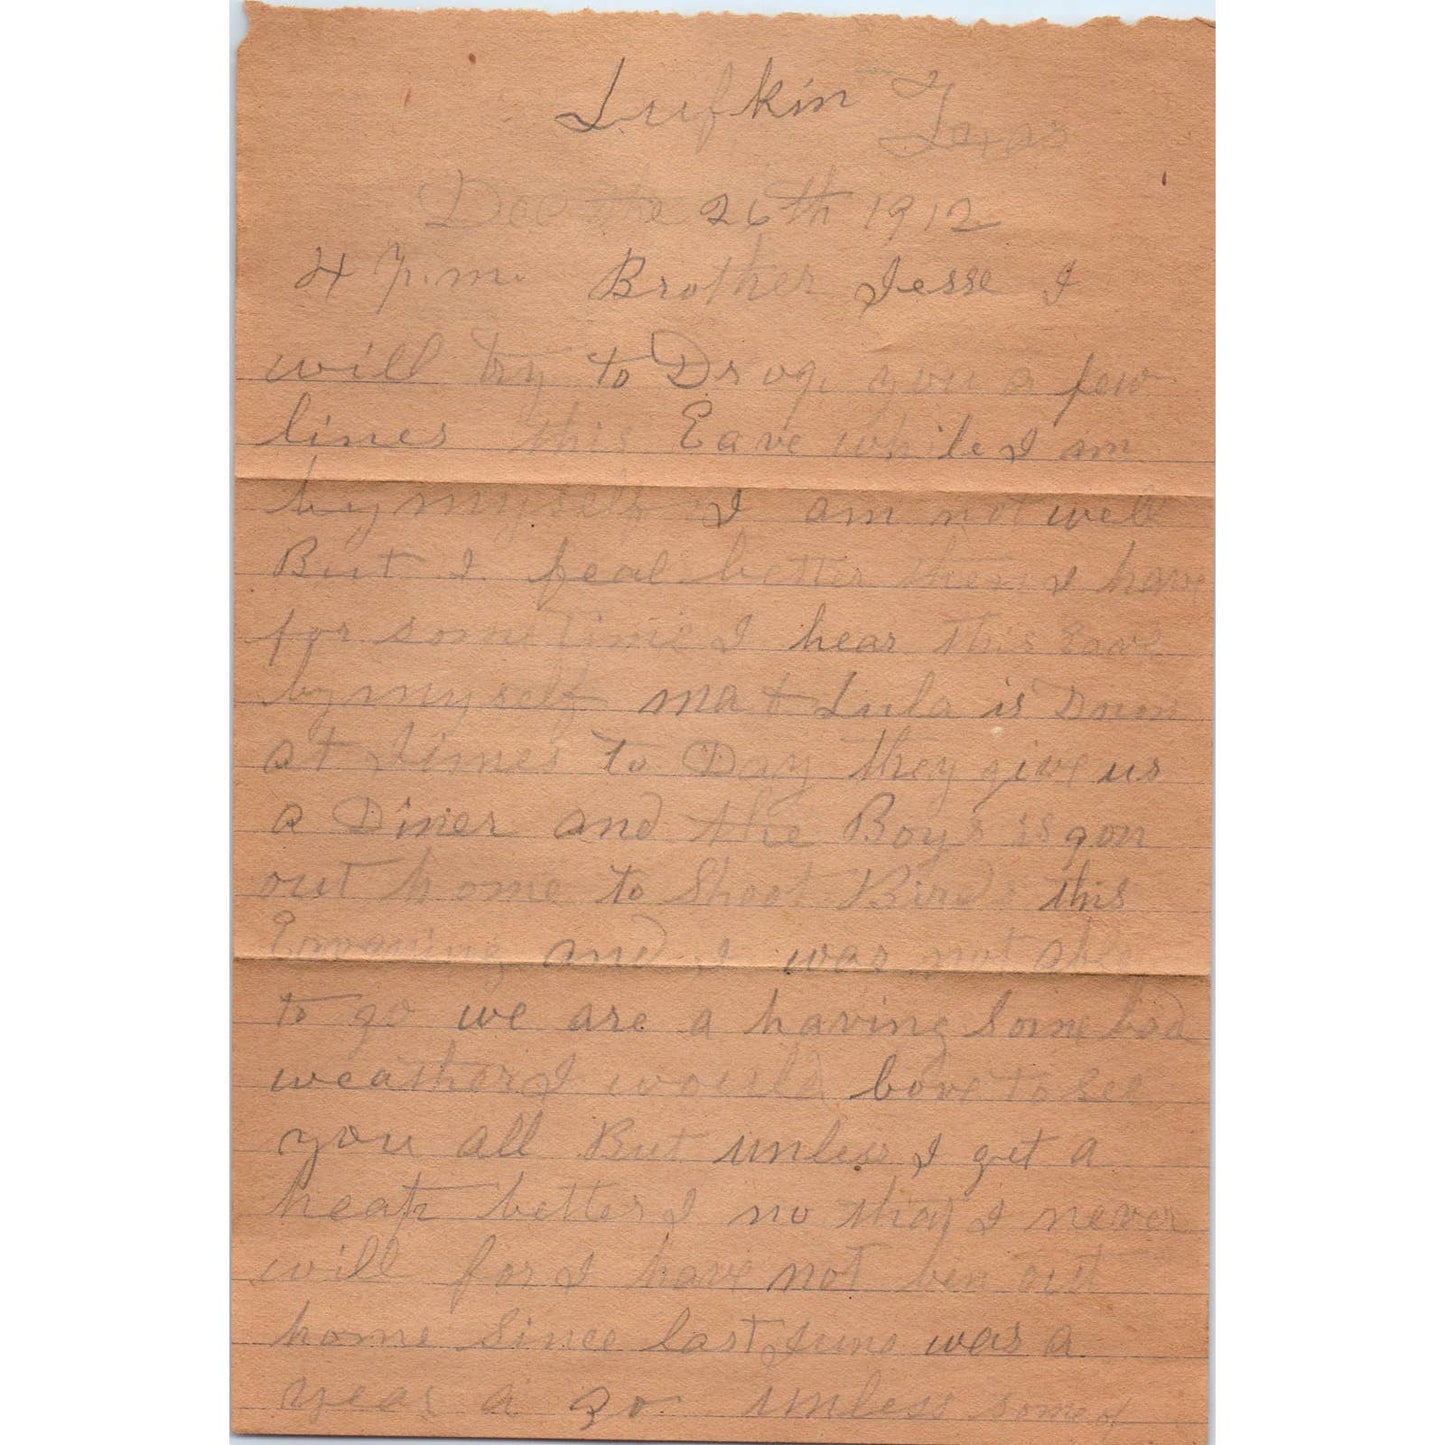 Lufkin Texas
Dec the 26th 1912
4 P.m. Brother Jesse I
will try to Drop you a few
lines this Eave while I am
by myself I am not well
But I feal better then I have
for some time I hear this Eave
by myself ma & Lula is Down
at Jimes to Day they give us
a Diner and the Boys is gon
out home to Shoot Birds this
and I was not able
to go we are a having Some bad
weather I would love to see
you all But unless I get a
heap better I no that I never
will for I have not ben out
home Since last June was a
year a go unless some of